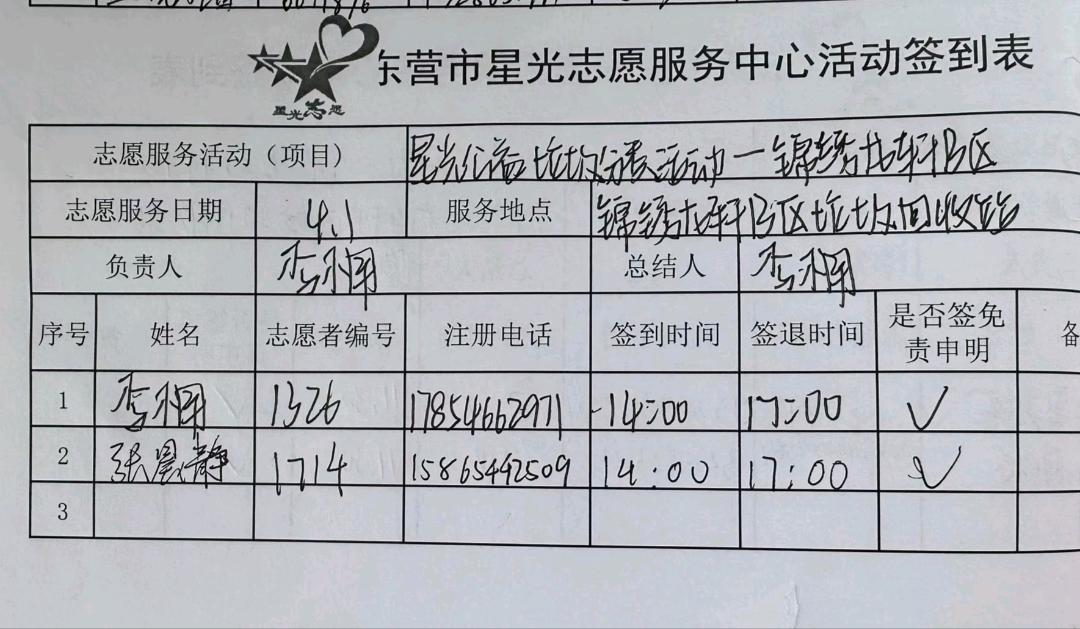 星光志愿
东营市星光志愿服务中心活动签到表
志愿服务活动（项目） 星光公益垃圾分类活动一锦绣龙轩B区
志愿服务日期 4.1 服务地点 锦绣龙轩B区垃圾回收站
负责人 李 总结人 李
序号 姓名 志愿者编号 注册电话 签到时间 签退时间 是否签免责申明 备
1 李 1326 17854662971 14:00 17:00 ✓
2 张晨静 1714 15865492509 14:00 17:00 ✓
3